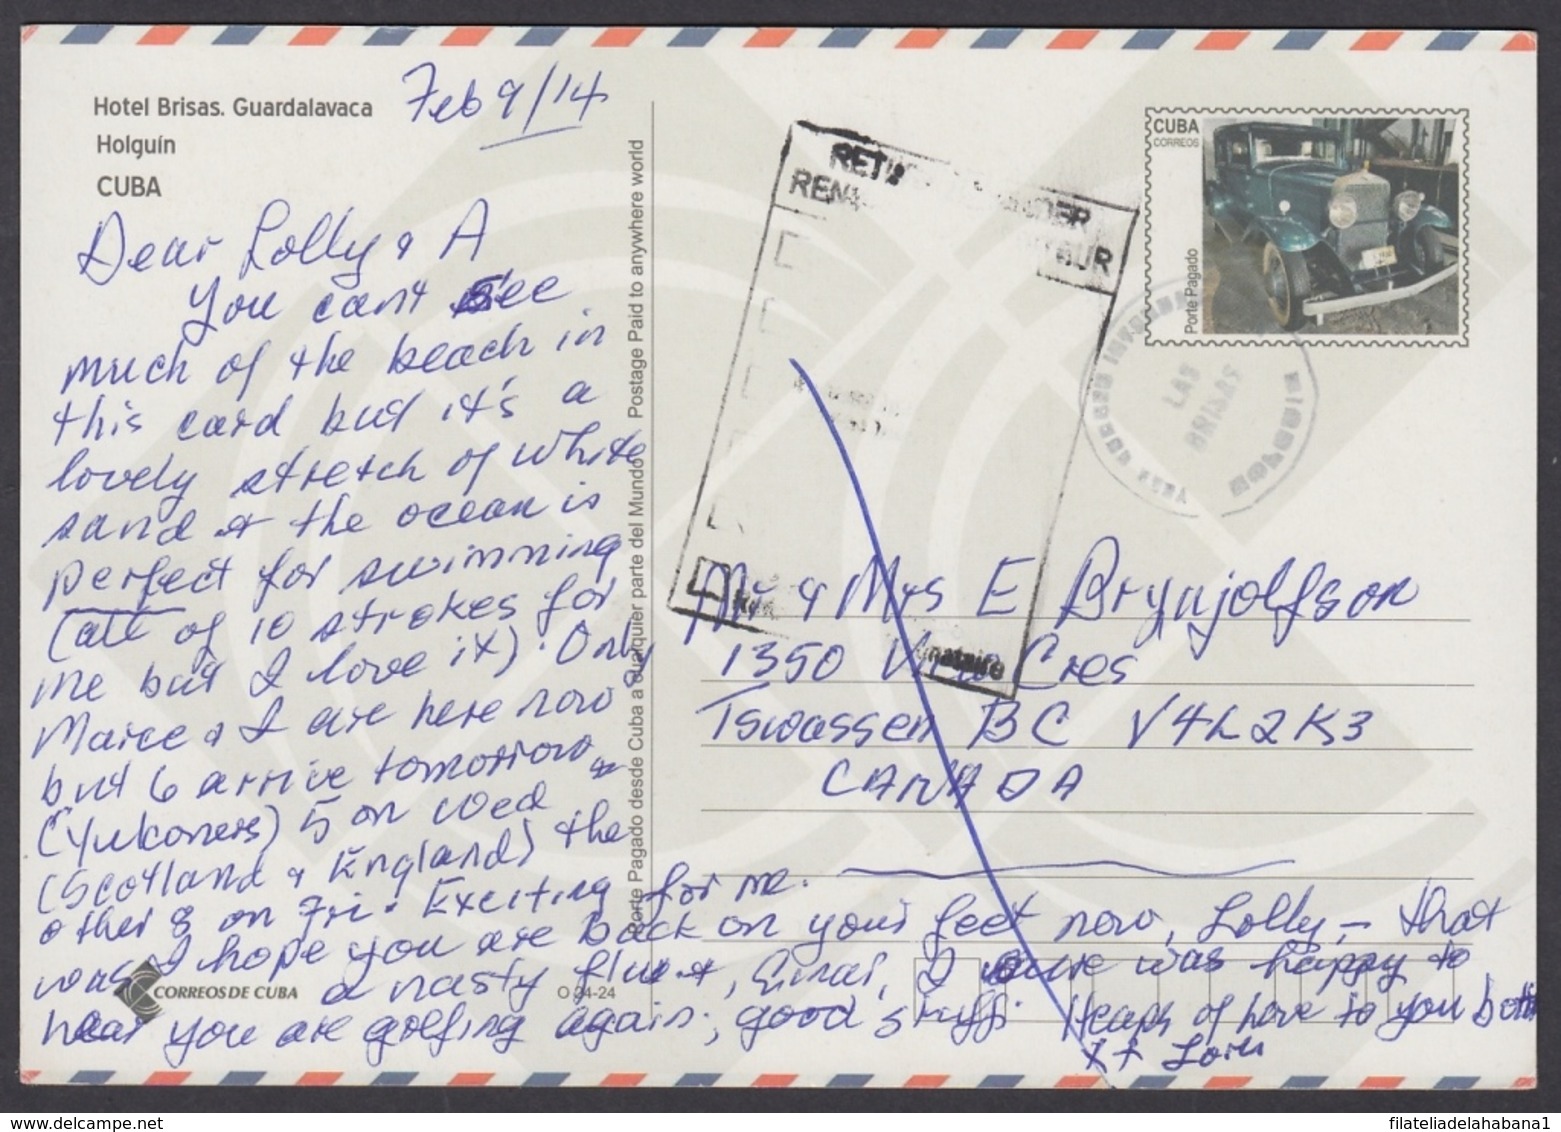 Hotel Brisas. Guardalavaca
Holguín
CUBA
Feb 9/14
Dear Lolly & A
You cant see
much of the beach in
this card but it's a
lovely stretch of white
sand & the ocean is
perfect for swimming
(all of 10 strokes for
me but I love it). Only
Maree & I are here now
but 6 arrive tomorrow
(Yukoners) 5 on Wed &
(Scotland & England) the
other 8 on Fri. Exciting for me.
I hope you are back on your feet now, Lolly, - that
was a nasty flu &, Einar, I sure was happy to
hear you are golfing again; good stuff. Heaps of love to you both
xx
CORREOS DE CUBA
O 94-24
Porte Pagado desde Cuba a cualquier parte del Mundo Postage Paid to anywhere world
CUBA
CORREOS
Porte Pagado
LAS
BRISAS
Mr & Mrs E Brynjolfson
1350 Cres
Tswassen BC V4L2K3
CANADA
filateliadelahabana1